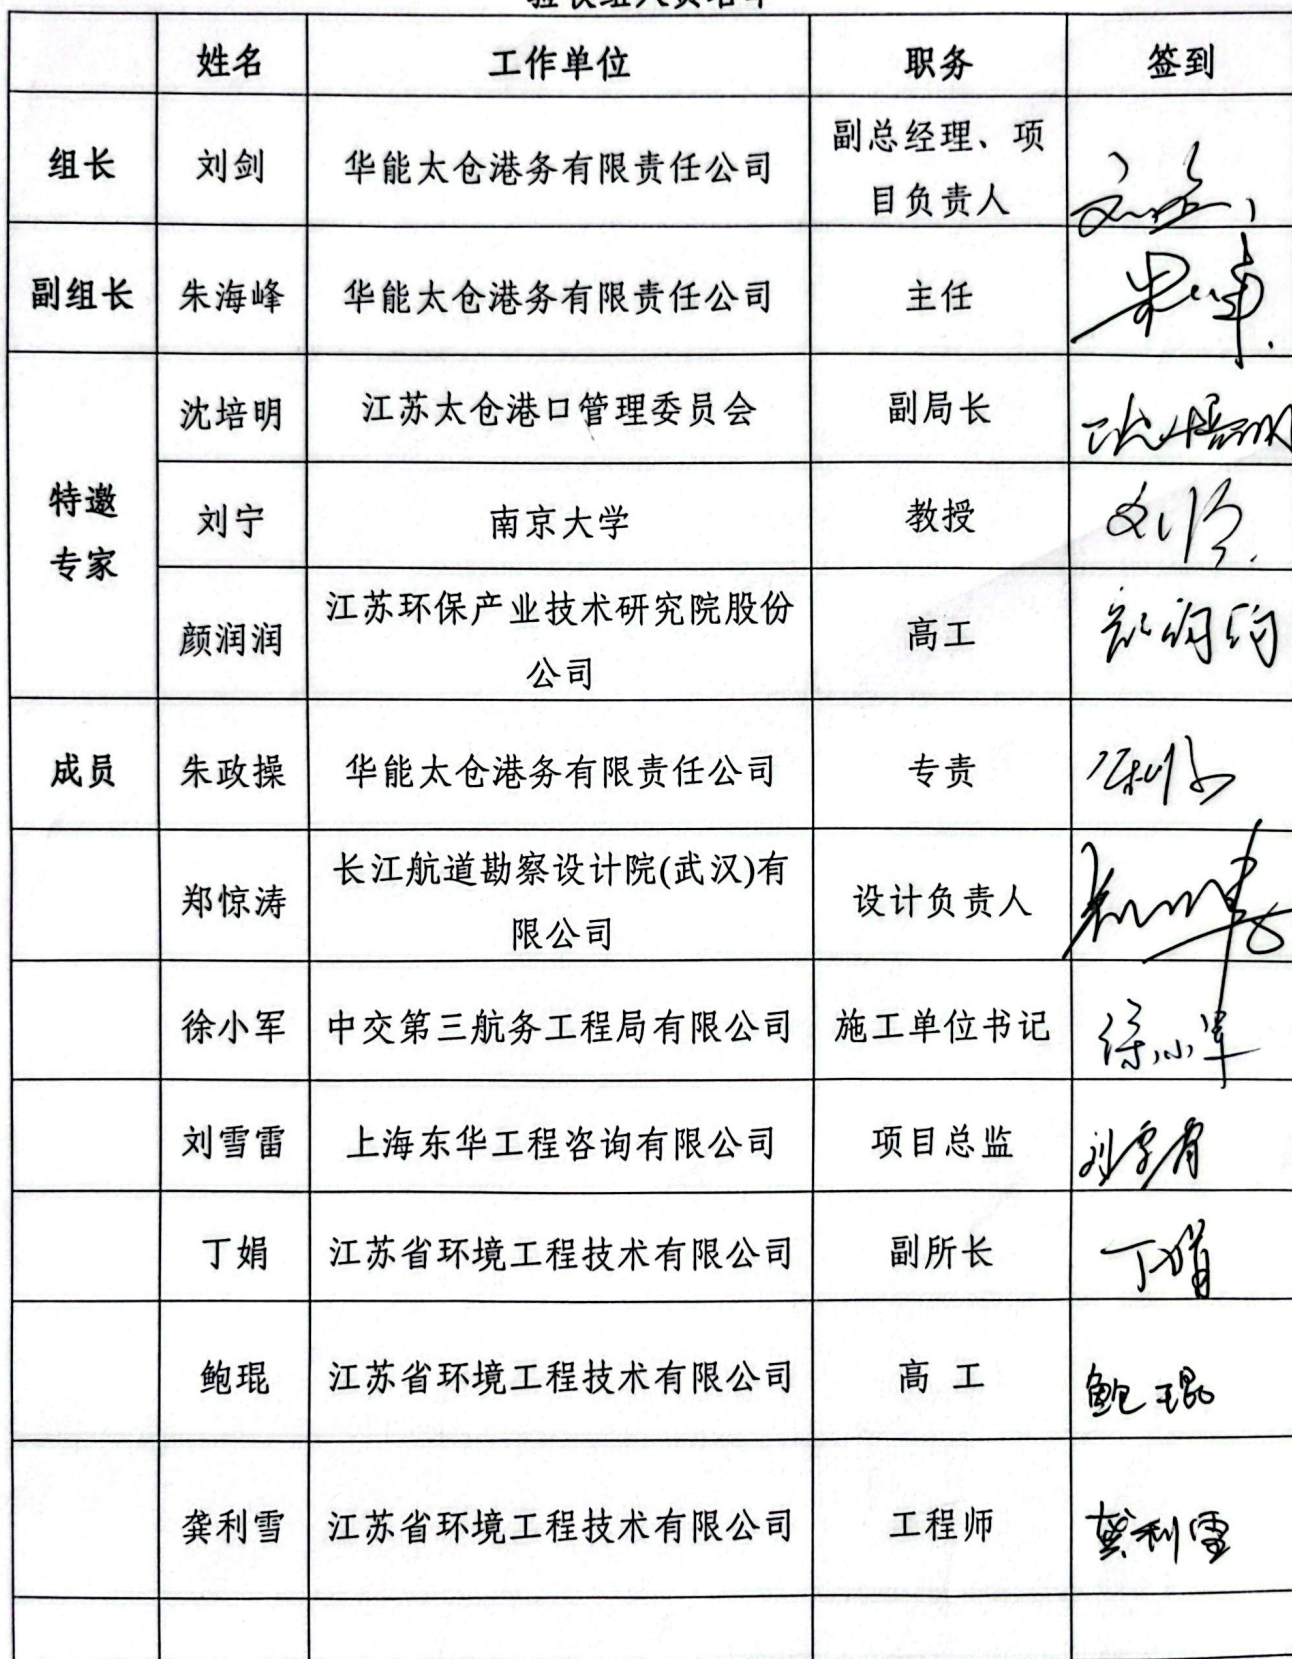 验收组人员名单
姓名 工作单位 职务 签到
组长 刘剑 华能太仓港务有限责任公司 副总经理、项
目负责人
副组长 朱海峰 华能太仓港务有限责任公司 主任
特邀
专家
沈培明 江苏太仓港口管理委员会 副局长 沈培明
刘宁 南京大学 教授
颜润润 江苏环保产业技术研究院股份
公司 高工 颜润润
成员 朱政操 华能太仓港务有限责任公司 专责
郑惊涛 长江航道勘察设计院(武汉)有
限公司 设计负责人
徐小军 中交第三航务工程局有限公司 施工单位书记 徐小军
刘雪雷 上海东华工程咨询有限公司 项目总监
丁娟 江苏省环境工程技术有限公司 副所长 丁娟
鲍琨 江苏省环境工程技术有限公司 高 工 鲍琨
龚利雪 江苏省环境工程技术有限公司 工程师 龚利雪